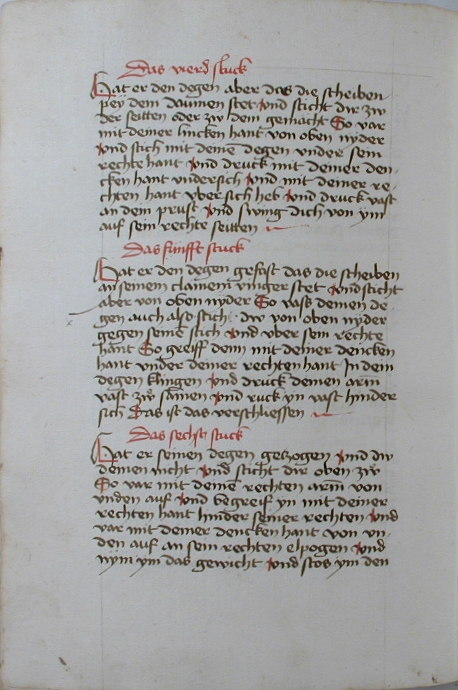 Das vierd stuck
Hat er den degen aber das die scheiben
pey dem daumen stet Vnd sticht dir zw
der seitten oder zw dem gemacht So var
mit deiner lincken hant von oben nyder
Vnd stich mit deine degen vnder sein
rechte hant Vnd druck mit deiner den-
cken hant vndersich Vnd mit deiner re-
chten hant vbersich heb Vnd druck vast
an dein prust Vnd swing dich von ym
auf sein rechte seitten
Das fünfft stuck
Hat er den degen gefast das die scheiben
an seinem clainem vinger stet Vnd sticht
aber von oben nyder So vass deinen de
gen auch also stich dw von oben nyder
gegen seinē stich Vnd vber sein rechte
hant So greiff denn mit deiner dencken
hant vnder deiner rechten hant In dein
degen klingen Vnd druck deinen arm
vast zw samen Vnd ruck yn vast hinder
sich Das ist das verschliessen
Das sechst stuck
Hat er seinen degen getzogen Vnd dw
deinen nicht Vnd sticht dir oben zw
So var mit deinē rechten arm von
vnden auf Vnd begreif yn mit deiner
rechten hant hinder seiner rechten Vnd
var mit deiner dencken hant von vn-
den auf an sein rechten elpogen Vnd
nym ym das gewicht Vnd stos ym den